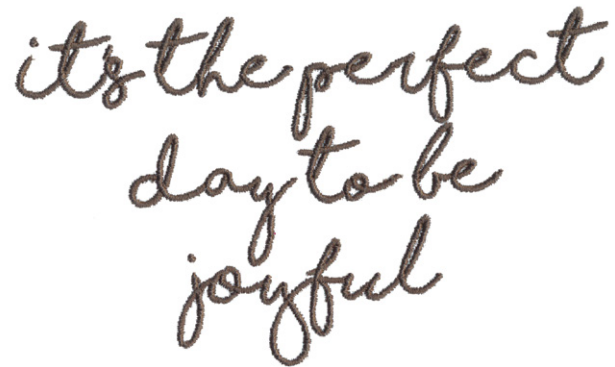 its the perfect
day to be
joyful